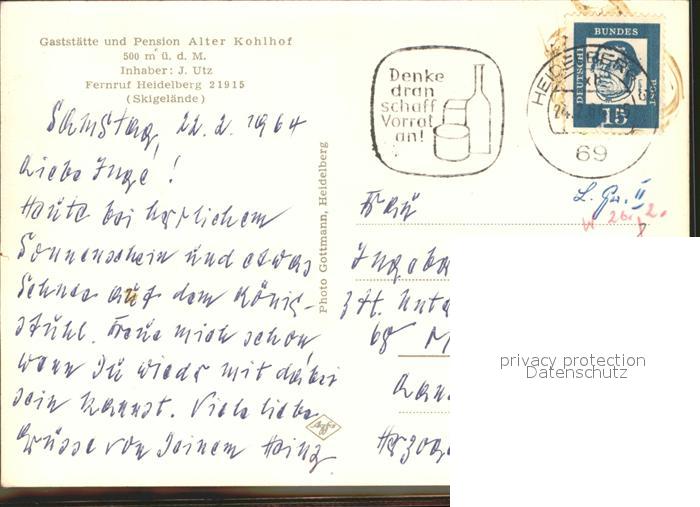 Gaststätte und Pension Alter Kohlhof
500 m ü. d. M.
Inhaber: J. Utz
Fernruf Heidelberg 21915
(Skigelände)
Samstag, 22.2.1964
Liebe Inge!
Heute bei herrlichem
Sonnenschein und etwas
Schnee auf dem König-
stuhl. Freue mich schon,
wenn Du wieder mit dabei
sein kannst. Viele liebe
Grüsse von Deinem Heinz
Photo Gottmann, Heidelberg
Agfa
Denke
dran
schaff
Vorrat
an!
HEIDELBERG
69
DEUTSCHE
BUNDES
POST
15
Frau
z.Zt.
68
privacy protection
Datenschutz